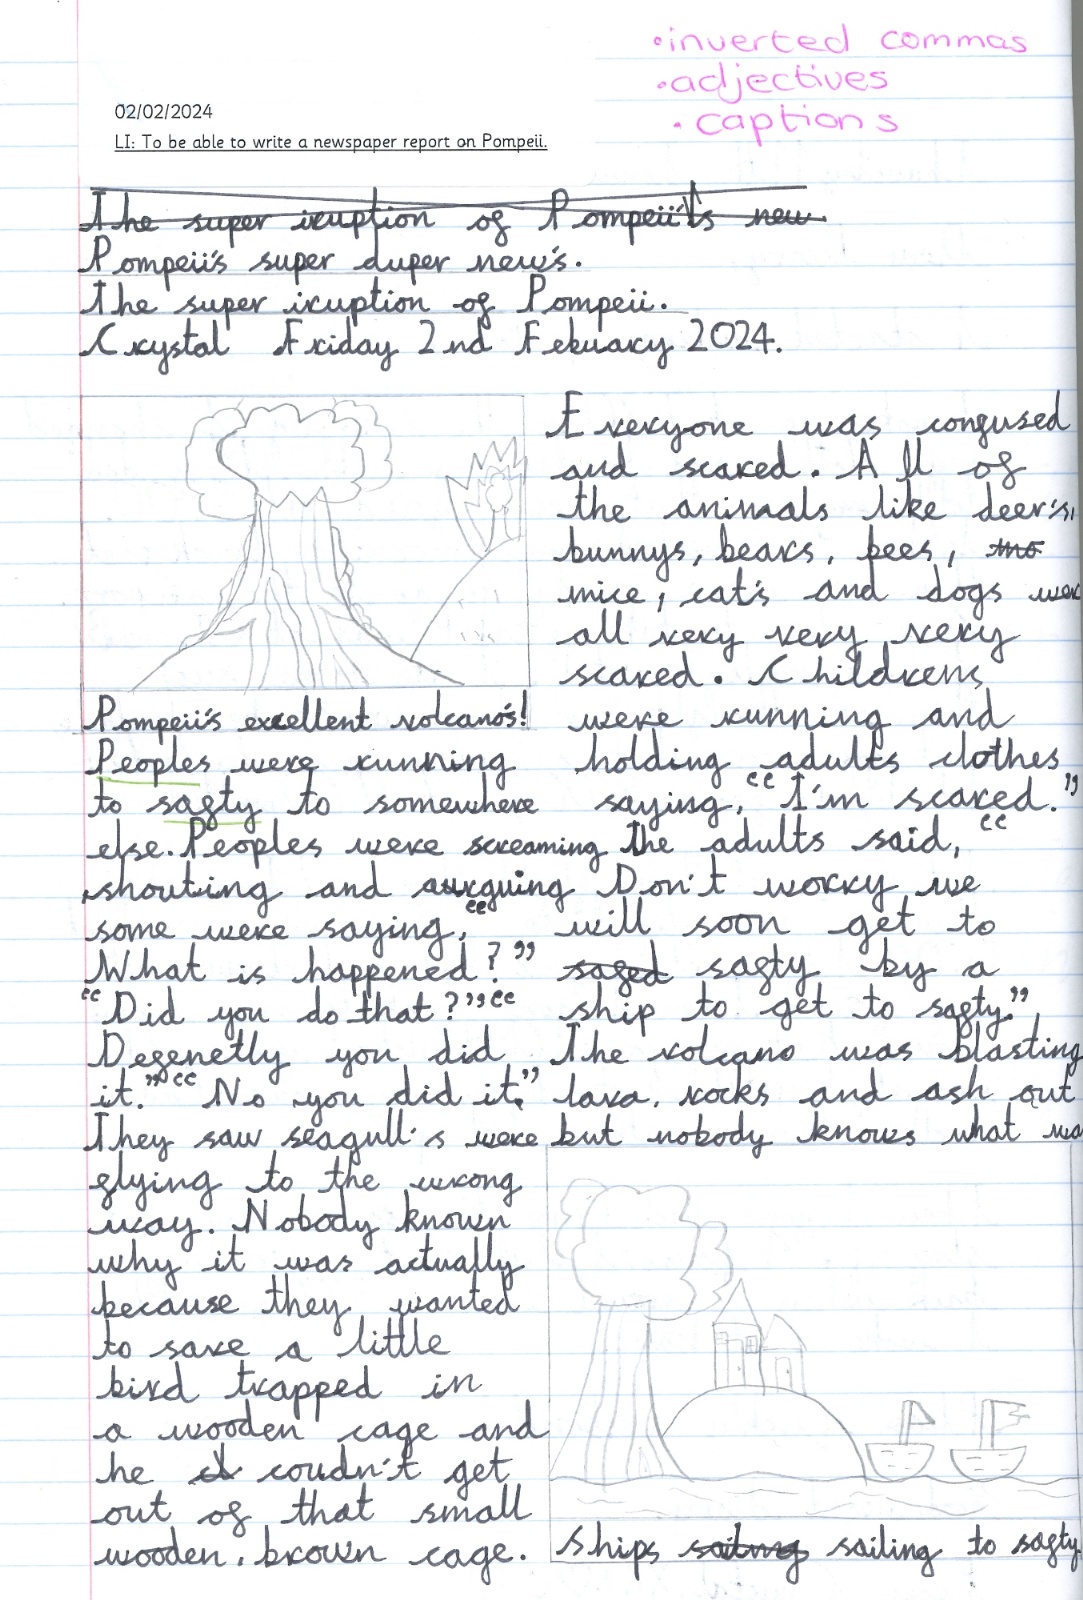 •inverted commas
•adjectives
•captions
02/02/2024
LI: To be able to write a newspaper report on Pompeii.
The super iruption of Pompeii's new
Pompeii's super duper new's.
The super iruption of Pompeii.
Crystal Friday 2nd Febuary 2024.
Pompeii's excellent volcano's!
Peoples were running
to safty to somewhere
else. Peoples were screaming
shouting and aurguing
some were saying, "
What is happened?"
"Did you do that?" "
Defenetly you did
it." "No you did it."
They saw seagull's were
flying to the wrong
way. Nobody known
why it was actually
because they wanted
to save a little
bird trapped in
a wooden cage and
he coudn't get
out of that small
wooden, brown cage.
Everyone was confused
and scared. All of
the animals like deer's,
bunnys, bears, bees,
mice, cat's and dogs wer
all very very very
scared. Childrens
were running and
holding adults clothes
saying, "I'm scared."
The adults said, "
Don't worry we
will soon get to
safed safty by a
ship to get to safty."
The volcano was blasting
lava, rocks and ash out
but nobody knows what wa
Ships sailing sailing to safty